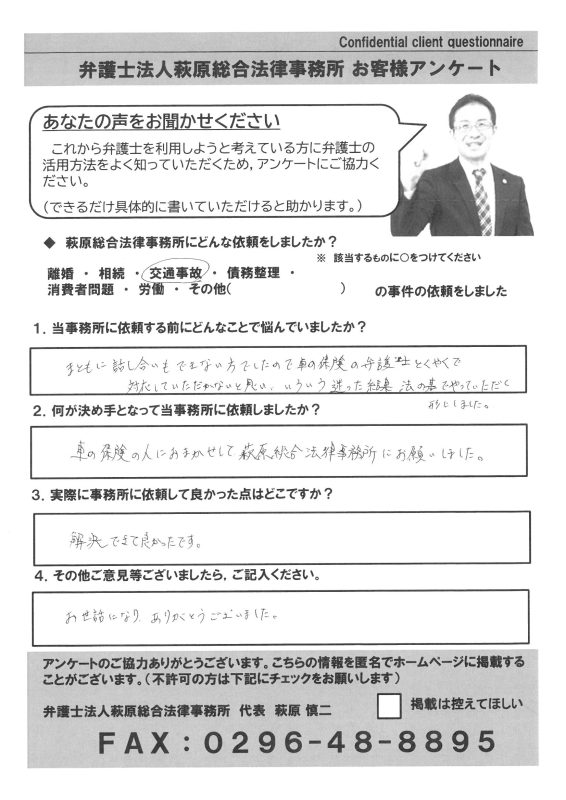 Confidential client questionnaire
弁護士法人萩原総合法律事務所 お客様アンケート
あなたの声をお聞かせください
これから弁護士を利用しようと考えている方に弁護士の
活用方法をよく知っていただくため，アンケートにご協力く
ださい。
（できるだけ具体的に書いていただけると助かります。）
◆ 萩原総合法律事務所にどんな依頼をしましたか？
※ 該当するものに○をつけてください
離婚 ・ 相続 ・ 交通事故 ・ 債務整理 ・
消費者問題 ・ 労働 ・ その他（ ） の事件の依頼をしました
1．当事務所に依頼する前にどんなことで悩んでいましたか？
まともに話し合いもできない方でしたので車の保険の弁護士とくやくで
対応していただかないと思い、いろいろ迷った結果 法の基でやっていただく
形にしました。
2．何が決め手となって当事務所に依頼しましたか？
車の保険の人におまかせして萩原総合法律事務所にお願いしました。
3．実際に事務所に依頼して良かった点はどこですか？
解決できて良かったです。
4．その他ご意見等ございましたら，ご記入ください。
お世話になり、ありがとうございました。
アンケートのご協力ありがとうございます。こちらの情報を匿名でホームページに掲載する
ことがございます。（不許可の方は下記にチェックをお願いします）
弁護士法人萩原総合法律事務所 代表 萩原 慎二
掲載は控えてほしい
FAX：0296-48-8895